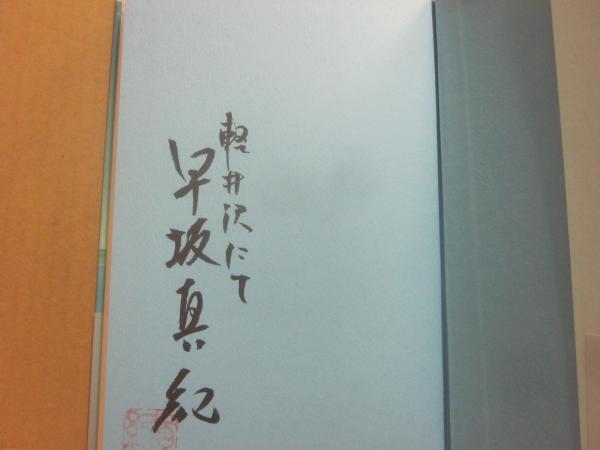 軽井沢にて
早坂真紀